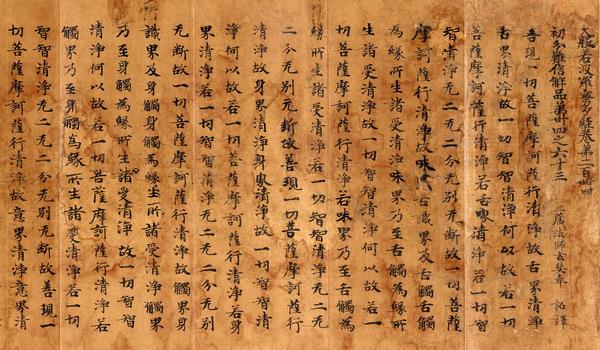 大般若波羅蜜多經卷第二百卌四
初分難信解品第卅四之六十三 三藏法師玄奘奉 詔譯
善現一切菩薩摩訶薩行清淨故舌界清淨
舌界清淨故一切智智清淨何以故若一切
菩薩摩訶薩行清淨若舌界清淨若一切智
智清淨无二无二分无別无斷故一切菩薩
摩訶薩行清淨故味界舌識界及舌觸舌觸
為緣所生諸受清淨味界乃至舌觸為緣所
生諸受清淨故一切智智清淨何以故若一
切菩薩摩訶薩行清淨若味界乃至舌觸為
緣所生諸受清淨若一切智智清淨无二无
二分无別无斷故善現一切菩薩摩訶薩行
清淨故身界清淨身界清淨故一切智智清
淨何以故若一切菩薩摩訶薩行清淨若身
界清淨若一切智智清淨无二无二分无別
无斷故一切菩薩摩訶薩行清淨故觸界身
識界及身觸身觸為緣所生諸受清淨觸界
乃至身觸為緣所生諸受清淨故一切智智
清淨何以故若一切菩薩摩訶薩行清淨若
觸界乃至身觸為緣所生諸受清淨若一切
智智清淨无二无二分无別无斷故善現一
切菩薩摩訶薩行清淨故意界清淨意界清